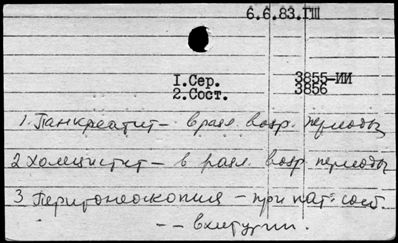 6.6.83.ГШ
1.Сер. 3855-ИИ
2.Сост. 3856
1. Панкреатит - в разл. возр. периоды
2 Холецистит - в разл. возр. периоды
3 Перитонеоскопия - при пат. сост.
-- в хирургии.